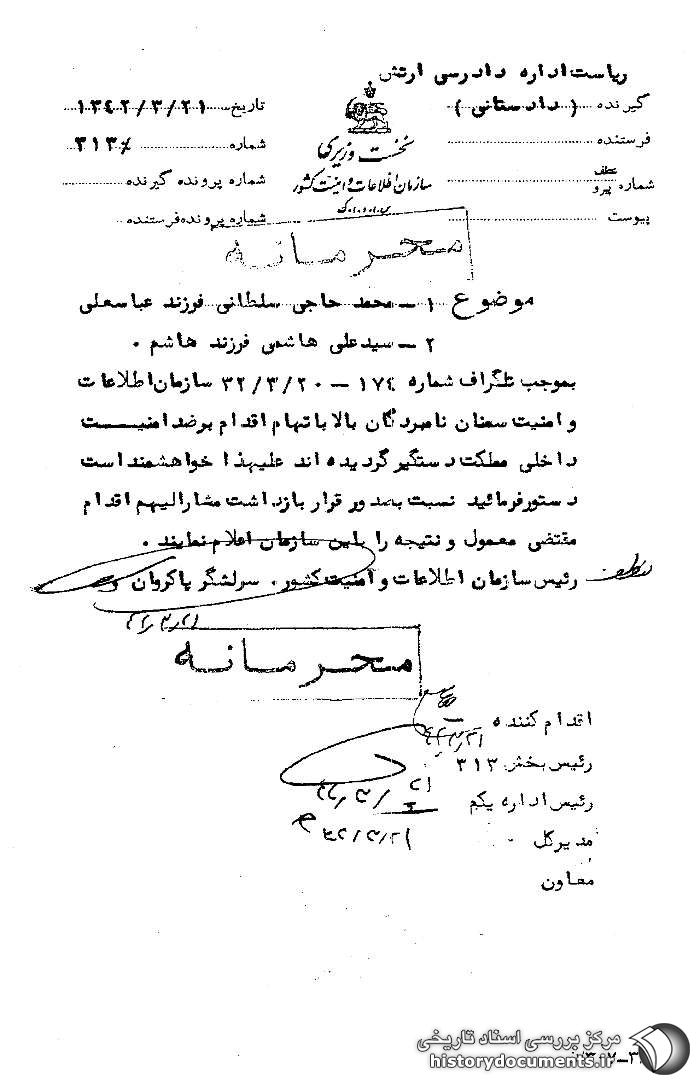 ریاست اداره دادرسی ارتش
گیرنده (دادستانی)
تاریخ ۱۳۴۲/۳/۲۱
فرستنده
نخست وزیری
شماره ۳۱۳/
شماره عطف پیرو
سازمان اطلاعات و امنیت کشور
شماره پرونده گیرنده
پیوست
س.ا.و.ا.ک
شماره پرونده فرستنده
محرمانه
موضوع ۱ - محمد حاجی سلطانی فرزند عباسعلی
۲ - سیدعلی هاشمی فرزند هاشم .
بموجب تلگراف شماره ۱۷۴ - ۳۲/۳/۲۰ سازمان اطلاعات
و امنیت سمنان نامبردگان بالا باتهام اقدام برضد امنیت
داخلی مملکت دستگیر گردیده اند علیهذا خواهشمند است
دستور فرمائید نسبت بصدور قرار بازداشت مشارالیهم اقدام
مقتضی معمول و نتیجه را باین سازمان اعلام نمایند .
رئیس سازمان اطلاعات و امنیت کشور. سرلشگر پاکروان
محرمانه
اقدام کننده
رئیس بخش ۳۱۳
رئیس اداره یکم
مدیرکل
۴۲/۳/۲۱
معاون
مرکز بررسی اسناد تاریخی
historydocuments.ir